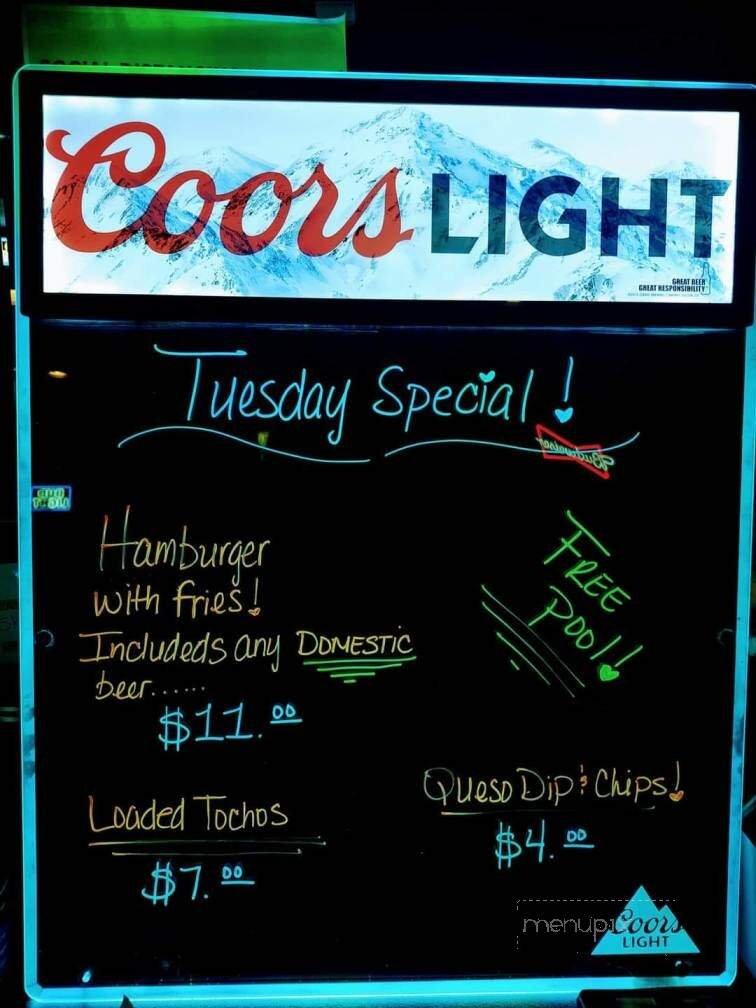 Coors LIGHT
GREAT BEER
GREAT RESPONSIBILITY
Tuesday Special!
Budweiser
Hamburger
with fries!
Includeds any DOMESTIC
beer......
$11.00
FREE
Pool!
Loaded Tochos
$7.00
Queso Dip & Chips!
$4.00
Coors
LIGHT